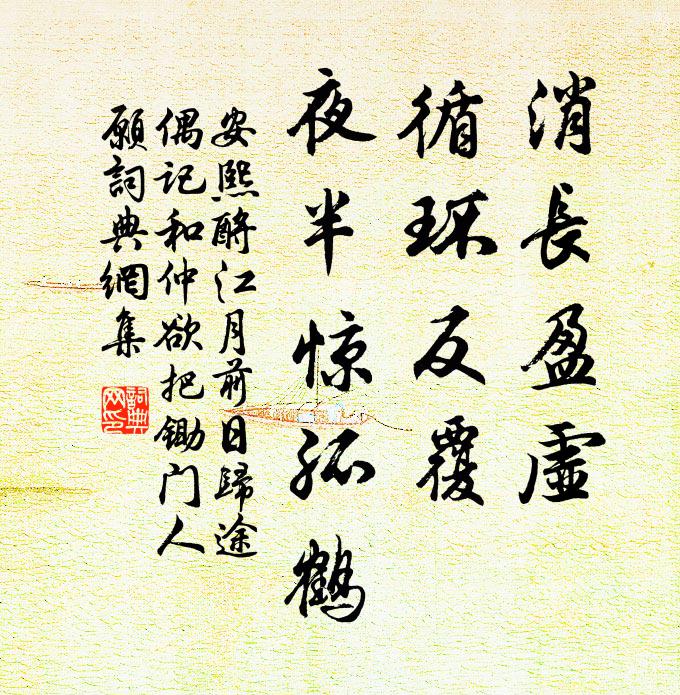 消長盈虛
循环反覆
夜半惊孤鶴
安熙酹江月前日歸途
偶记和仲欲把锄门人
願詞典網集
詞典
网印